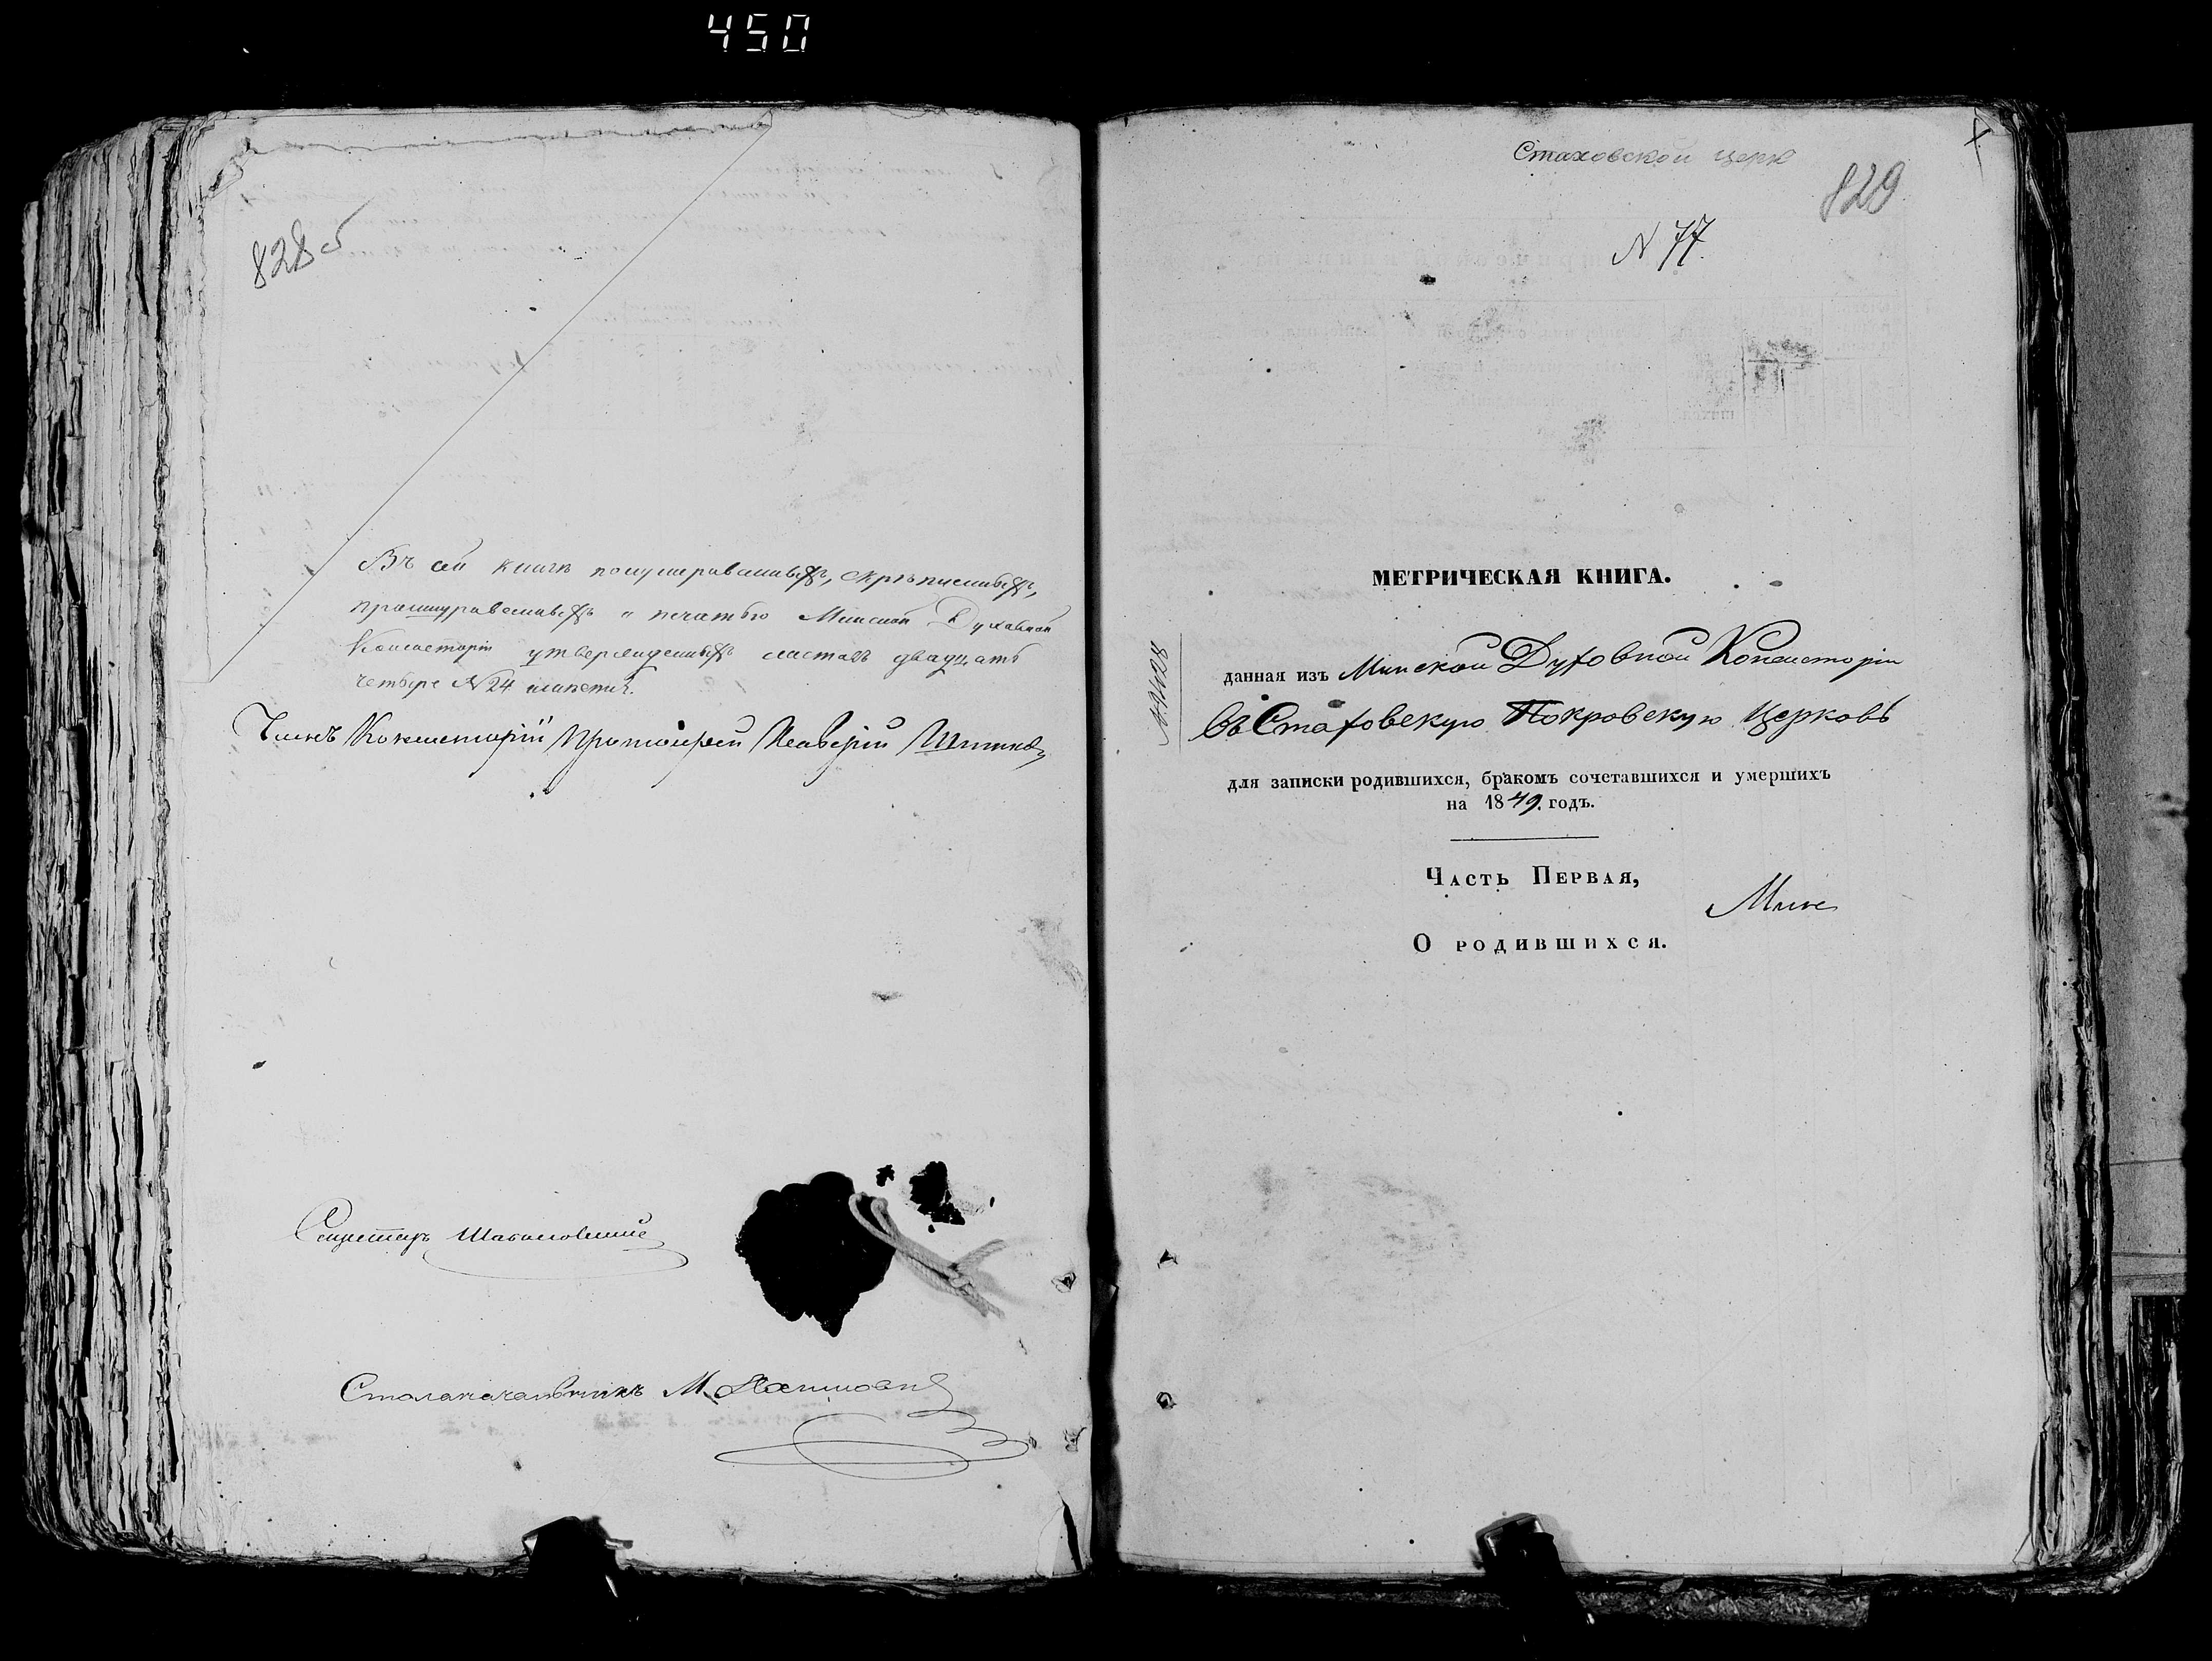 450
828 об
Въ сей книгѣ нонумерованныхъ, скрѣпленныхъ,
прошнурованныхъ и печатью Минской Духовной
Консисторіи утвержденныхъ листовъ двадцать
четыре №24
Членъ Консисторіи Протоіерей
Секретарь
Столоначальникъ М.
Стаховской церк
829
N 77.
МЕТРИЧЕСКАЯ КНИГА.
данная изъ Минской Духовной Консисторіи
въ Стаховскую Покровскую Церковь
для записки родившихся, бракомъ сочетавшихся и умершихъ
на 1849. годъ.
Часть Первая,
О родившихся.